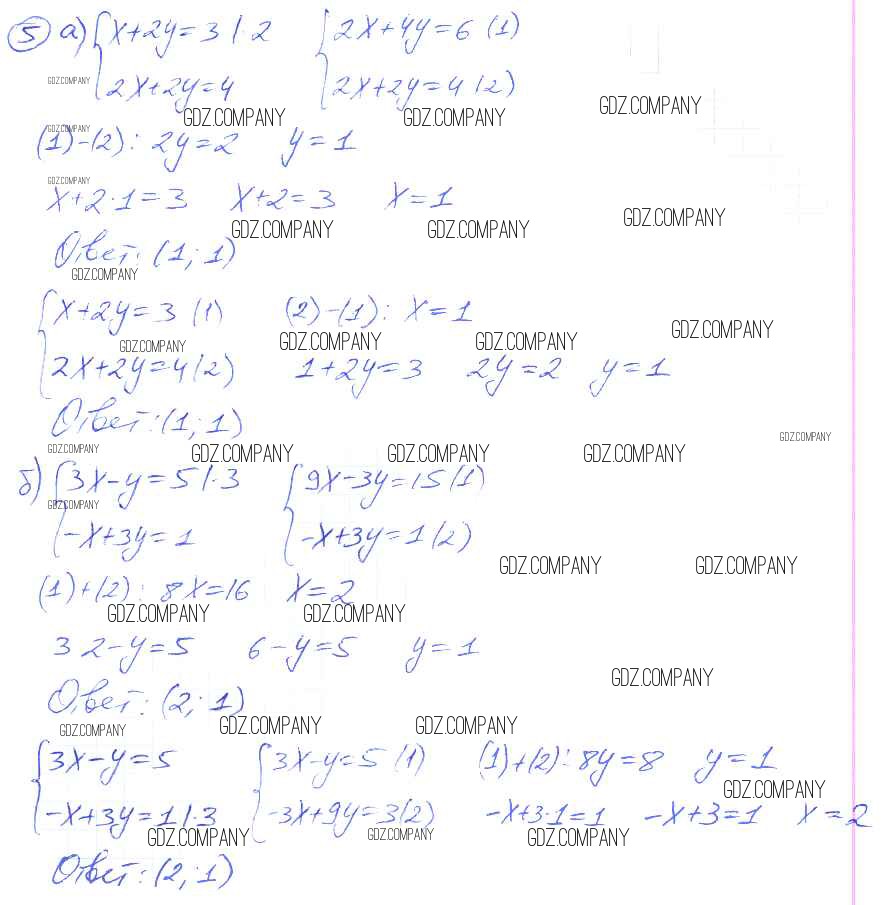 5 а) { x+2y=3 |·2 { 2x+4y=6 (1)
GDZ.COMPANY 2x+2y=4 2x+2y=4 (2)
GDZ.COMPANY GDZ.COMPANY GDZ.COMPANY
GDZ.COMPANY
(1)-(2): 2y=2 y=1
GDZ.COMPANY
x+2·1=3 x+2=3 x=1
GDZ.COMPANY GDZ.COMPANY GDZ.COMPANY
Ответ: (1; 1)
GDZ.COMPANY
{ x+2y=3 (1) (2)-(1): x=1
GDZ.COMPANY GDZ.COMPANY GDZ.COMPANY GDZ.COMPANY
2x+2y=4 (2) 1+2y=3 2y=2 y=1
Ответ: (1; 1)
GDZ.COMPANY GDZ.COMPANY GDZ.COMPANY GDZ.COMPANY GDZ.COMPANY
б) { 3x-y=5 |·3 { 9x-3y=15 (1)
GDZ.COMPANY
-x+3y=1 -x+3y=1 (2)
GDZ.COMPANY GDZ.COMPANY
(1)+(2): 8x=16 x=2
GDZ.COMPANY GDZ.COMPANY
3 2-y=5 6-y=5 y=1
GDZ.COMPANY
Ответ: (2; 1)
GDZ.COMPANY GDZ.COMPANY GDZ.COMPANY
{ 3x-y=5 { 3x-y=5 (1) (1)+(2): 8y=8 y=1
GDZ.COMPANY
-x+3y=1 |·3 -3x+9y=3 (2) -x+3·1=1 -x+3=1 x=2
GDZ.COMPANY GDZ.COMPANY GDZ.COMPANY
Ответ: (2; 1)